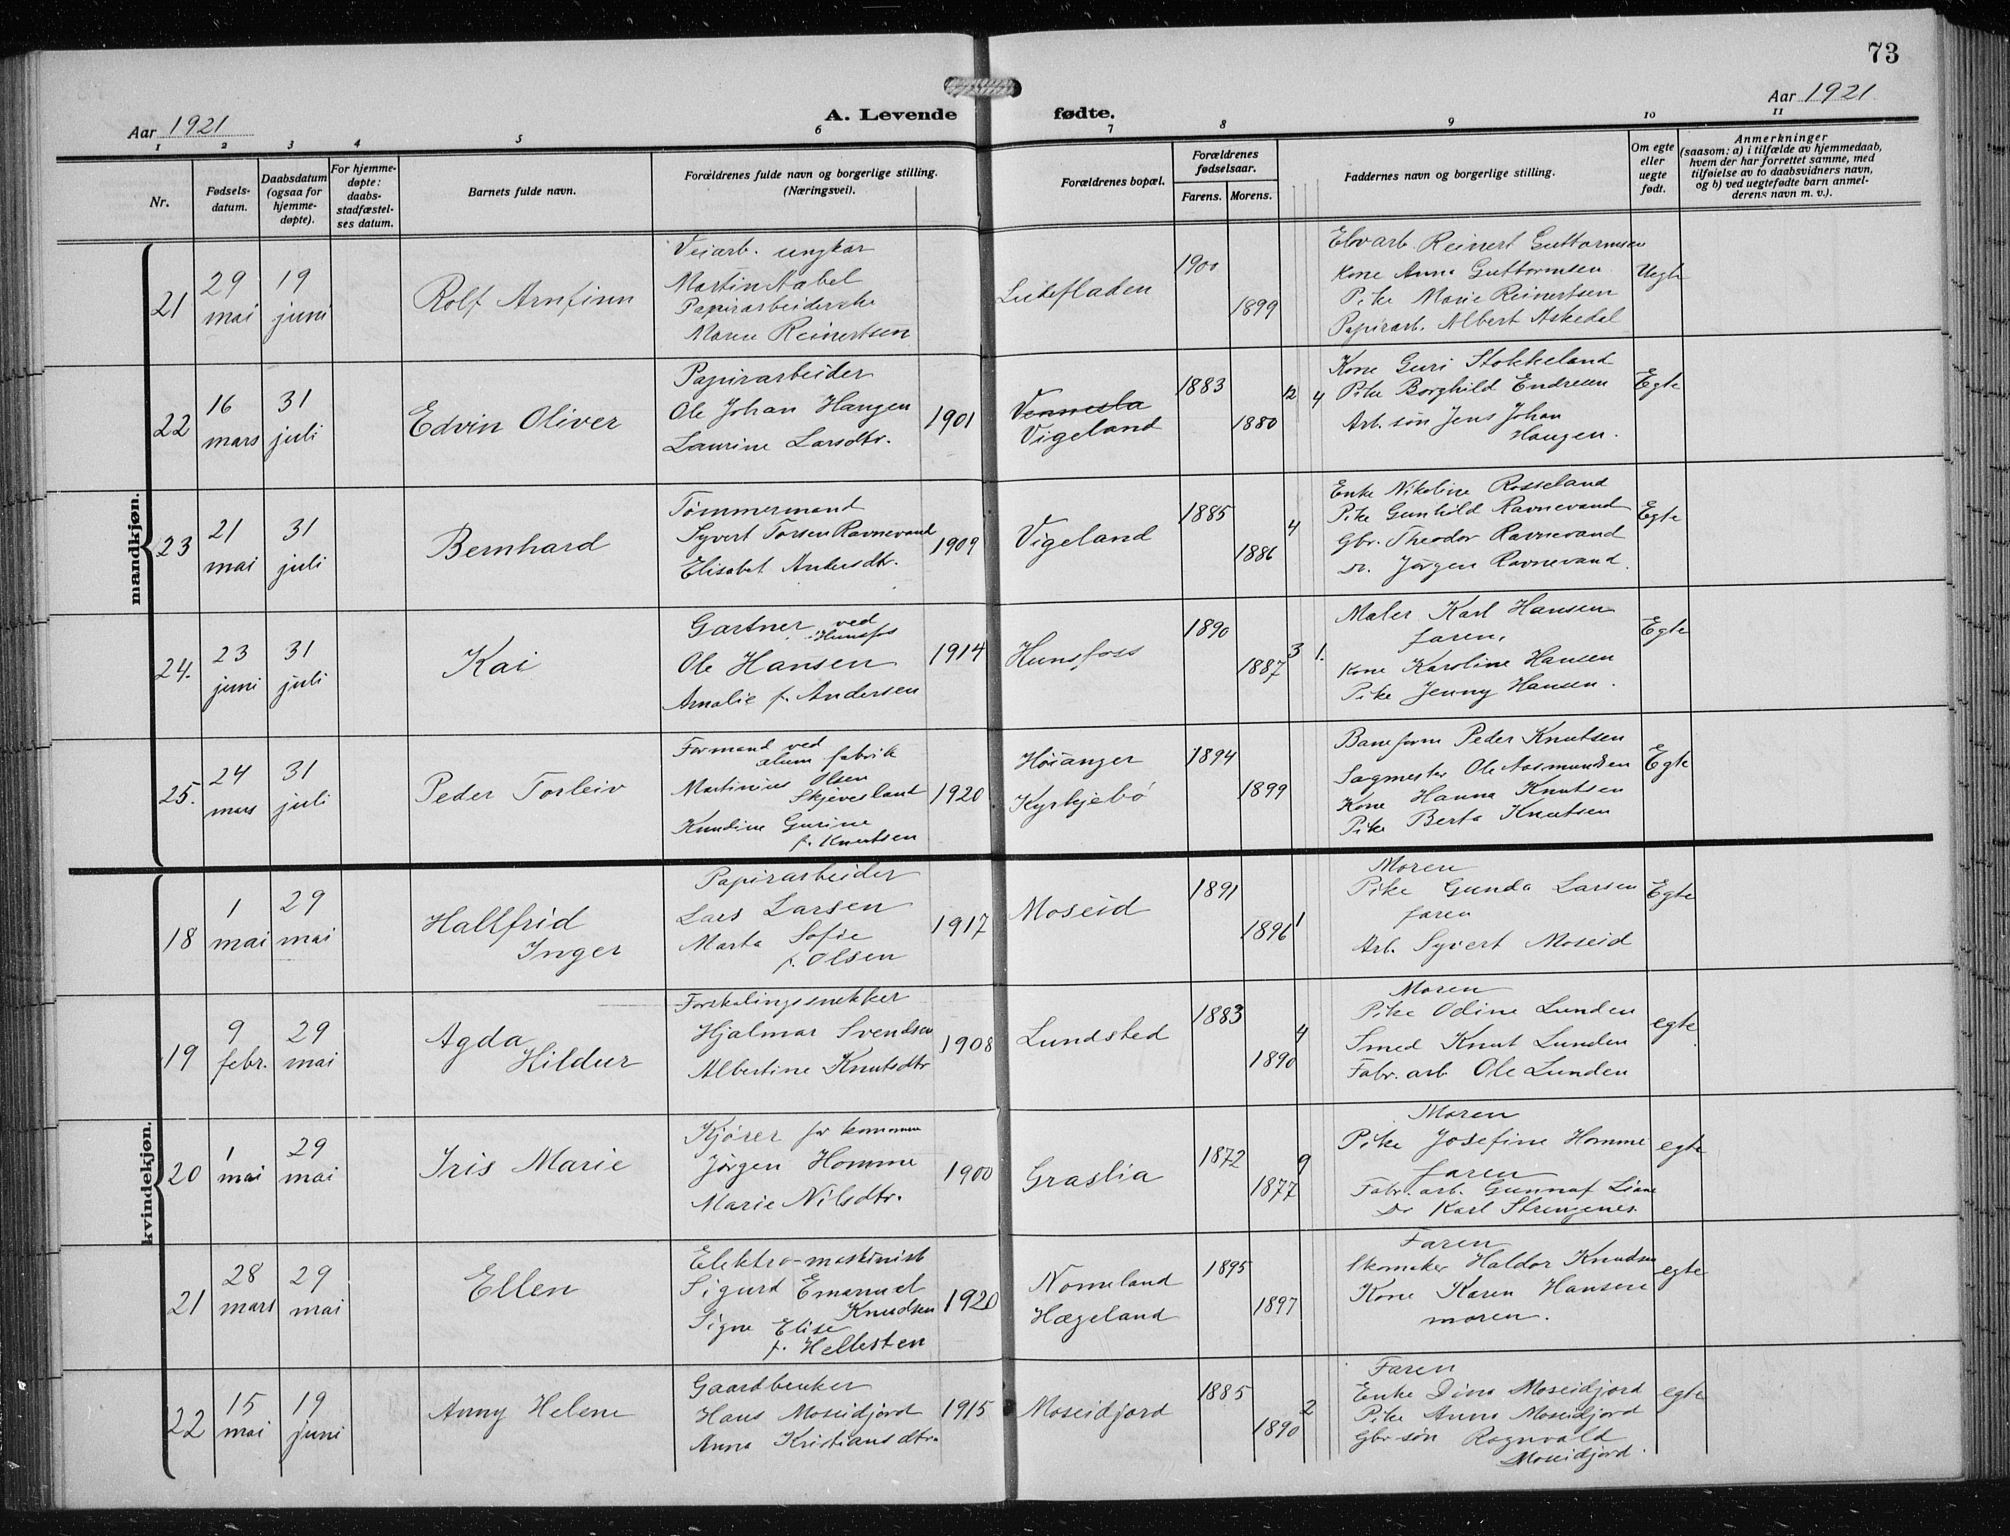 73
Aar 1921
A. Levende fødte.
Aar 1921
1 2 3 4 5 6 7 8 9 10 11
Nr.
Fødsels-
datum.
Daabsdatum
(ogsaa for
hjemme-
døpte).
For hjemme-
døpte:
daabs-
stadfæstel-
ses datum.
Barnets fulde navn.
Forældrenes fulde navn og borgerlige stilling.
(Næringsvei).
Forældrenes bopæl.
Forældrenes
fødselsaar.
Farens. Morens.
Faddernes navn og borgerlige stilling.
Om egte
eller
uegte
født.
Anmerkninger
(saasom: a) i tilfælde av hjemmedaab,
hvem der har forrettet samme, med
tilføielse av to daabsvidners navn,
og b) ved uegtefødte barn anmel-
derens navn m. v.).
mandkjøn.
21
29
mai
19
juni
Rolf Arnfinn
Veiarb. ungkar
Martin Aabel
Papirarbeiderske
Maren Reinertsen
1900
1899
Reinert Guttormsen
Kone Anna Guttormsen
Pike Marie Reinertsen
Papirarb. Albert Askedal
Uegte
22
16
mars
31
juli
Edvin Oliver
Papirarbeider
Ole Johan Haugen
Laurine Larsdtr.
1901
Vennesla
Vigeland
1883
1880
12 4
Kone Guri Stokkeland
Pike Borghild Endresen
Arb. søn Jens Johan
Haugen.
Egte
23
21
mai
31
juli
Bernhard
Tømmermand
Syvert Torsen Ravnevand
Elisabet Andersdtr.
1909
Vigeland
1885
1886
4
Enke Nikoline Rosseland
Pike Gunhild Ravnevand
Gbr. Theodor Ravnevand
Do. Jørgen Ravnevand.
Egte
24.
23
juni
31
juli
Kai
Gartner ved
Hunsfos
Ole Hansen
Amalie f. Andersen
1914
Hunsfoss
1890
1887
3 1.
Maler Karl Hansen
faren,
Kone Karoline Hansen
Pike Jenny Hansen.
Egte
25.
24
mars
31
juli
Peder Torleiv
Formand ved
alum fabrik
Martinius Olsen
Skjevesland
Kundine Gurine
f. Knutsen
1920
Høianger
Kyrkjebø
1894
1899
Baneform Peder Knutsen
Sagmester Ole Aasmundsen
Kone Hanna Knutsen
Pike Berta Knutsen
Egte
kvindekjøn.
18
1
mai
29
mai
Hallfrid
Inger
Papirarbeider
Lars Larsen
Marta Sofie
f. Olsen
1917
Moseid
1891
1896
1
Moren
Pike Gunda Larsen
faren
Arb. Syvert Moseid
Egte
19
9
febr.
29
mai
Agda
Hildur
Forskalingssnekker
Hjalmar Svendsen
Albertine Knutsdtr
1908
Lundsted
1883
1890
4
Moren
Pike Odine Lunden
Smed Knut Lunden
Fabr. arb Ole Lunden
egte
20
1
mai
29
mai
Iris Marie
Kjører for kommunen
Jørgen Homme
Marie Nilsdtr.
1900
Graslia
1872
1877
9
Moren
Pike Josefine Homme
faren
Fabr. arb. Gunnar Liane
Do Karl Strengenes.
egte
21
28
mars
29
mai
Ellen
Elektro-maskinist
Sigurd Emanuel
Knudsen
Signe Elise
f. Hellesten
1920
Nomeland
Hægeland
1895
1897
Faren
Skomaker Haldor Knudsen
Kone Karen Hansen
moren.
egte
22
15
mai
19
juni
Anny Helene
Gaardbruker
Hans Moseidjord
Anna Kristiansdtr.
1915
Moseidjord
1885
1890
2
Faren
Enke Dina Moseidjord
Pike Anna Moseidjord
Gbr søn Ragnvald
Moseidjord.
egte